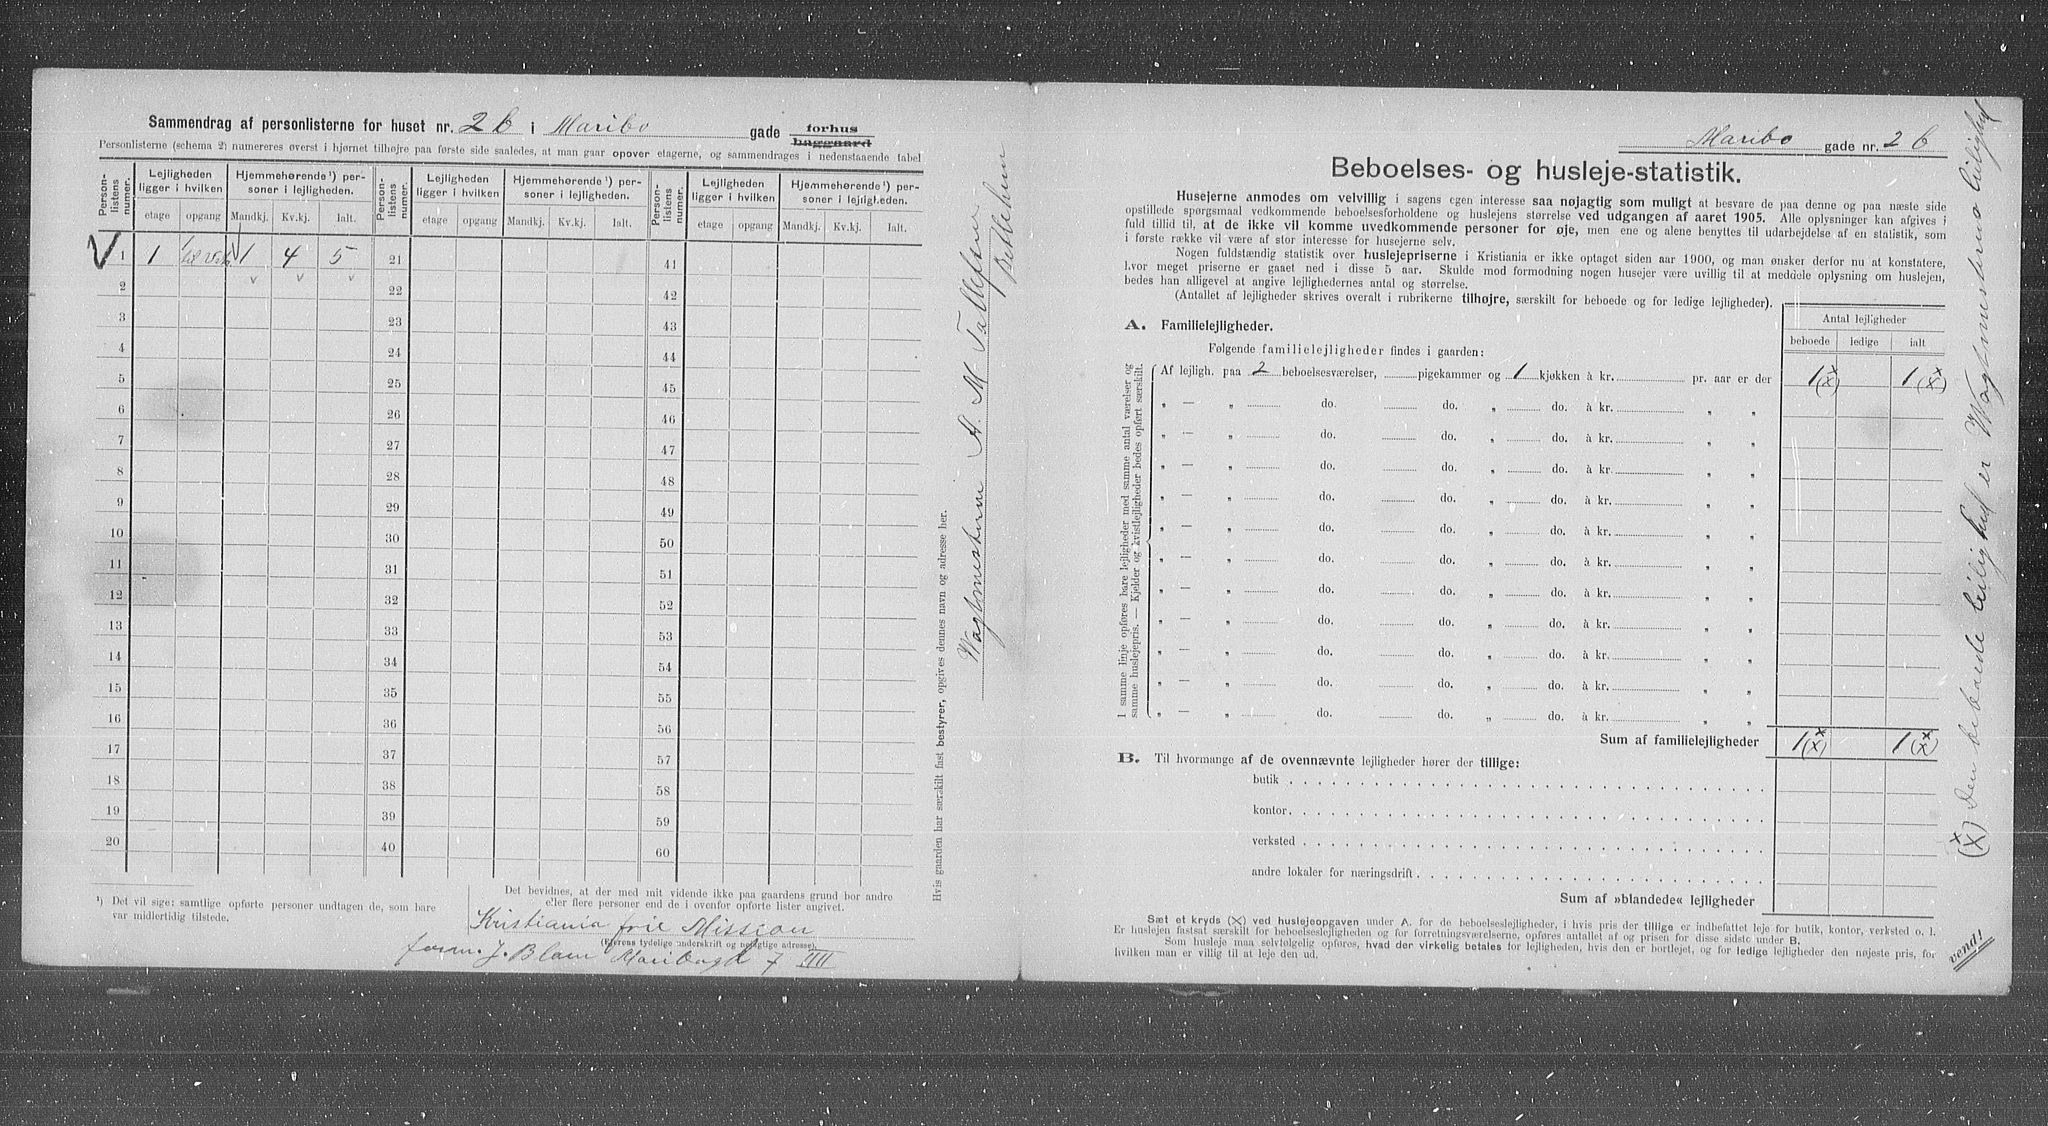 Sammendrag af personlisterne for huset nr. 2 b i Maribo gade forhus baggaard
Personlisterne (schema 2) numereres øverst i hjørnet tilhøjre paa første side saaledes, at man gaar opover etagerne, og sammendrages i nedenstaaende tabel
Person-listens numer. Lejligheden ligger i hvilken Hjemmehørende¹) personer i lejligheden. Person-listens numer. Lejligheden ligger i hvilken Hjemmehørende¹) personer i lejligheden. Person-listens numer. Lejligheden ligger i hvilken Hjemmehørende¹) personer i lejligheden.
etage opgang Mandkj. Kv.kj. Ialt. etage opgang Mandkj. Kv.kj. Ialt. etage opgang Mandkj. Kv.kj. Ialt.
1 1 1 4 5 21 41
2 22 42
3 23 43
4 24 44
5 25 45
6 26 46
7 27 47
8 28 48
9 29 49
10 30 50
11 31 51
12 32 52
13 33 53
14 34 54
15 35 55
16 36 56
17 37 57
18 38 58
19 39 59
20 40 60
¹) Det vil sige: samtlige opførte personer undtagen de, som bare
var midlertidig tilstede.
Det bevidnes, at der med mit vidende ikke paa gaardens grund bor andre
eller flere personer end de i ovenfor opførte lister angivet.
Kristiania frie Mission
(Ejerens tydelige underskrift og nøjagtige adresse).
form. J. Blom Maribogd 7 III
Hvis gaarden har særskilt fast bestyrer, opgives dennes navn og adresse her.
Wagtmesterin A. M Tallefsen
Betlehem
Maribo gade nr. 2 b
Beboelses- og husleje-statistik.
Husejerne anmodes om velvillig i sagens egen interesse saa nøjagtig som muligt at besvare de paa denne og paa næste side
opstillede spørgsmaal vedkommende beboelsesforholdene og huslejens størrelse ved udgangen af aaret 1905. Alle oplysninger kan afgives i
fuld tillid til, at de ikke vil komme uvedkommende personer for øje, men ene og alene benyttes til udarbejdelse af en statistik, som
i første række vil være af stor interesse for husejerne selv.
Nogen fuldstændig statistik over huslejepriserne i Kristiania er ikke optaget siden aar 1900, og man ønsker derfor nu at konstatere,
hvor meget priserne er gaaet ned i disse 5 aar. Skulde mod formodning nogen husejer være uvillig til at meddele oplysning om huslejen,
bedes han alligevel at angive lejlighedernes antal og størrelse.
(Antallet af lejligheder skrives overalt i rubrikerne tilhøjre, særskilt for beboede og for ledige lejligheder).
A. Familielejligheder.
Antal lejligheder
Følgende familielejligheder findes i gaarden:
beboede ledige ialt
I samme linje opføres bare lejligheder med samme antal værelser og
samme huslejepris. — Kjelder og kvistlejligheder bedes opført særskilt.
Af lejligh. paa 2 beboelsesværelser, pigekammer og 1 kjøkken à kr. pr. aar er der 1 (x)ˣ 1 (x)ˣ
„ — „ do. do. „ do. à kr. „ „
„ — „ do. do. „ do. à kr. „ „
„ — „ do. do. „ do. à kr. „ „
„ — „ do. do. „ do. à kr. „ „
„ — „ do. do. „ do. à kr. „ „
„ — „ do. do. „ do. à kr. „ „
„ — „ do. do. „ do. à kr. „ „
„ — „ do. do. „ do. à kr. „ „
„ — „ do. do. „ do. à kr. „ „
„ — „ do. do. „ do. à kr. „ „
„ — „ do. do. „ do. à kr. „ „
Sum af familielejligheder 1 (x)ˣ 1 (x)ˣ
B. Til hvormange af de ovennævnte lejligheder hører der tillige:
butik
kontor
verksted
andre lokaler for næringsdrift
Sum af »blandede« lejligheder
Sæt et kryds (X) ved huslejeopgaven under A. for de beboelseslejligheder, i hvis pris der tillige er indbefattet leje for butik, kontor, verksted o. l.
Er huslejen fastsat særskilt for beboelseslejligheden og for forretningsværelserne, opføres antallet af og prisen for disse sidste under B.
Som husleje maa selvfølgelig opføres, hvad der virkelig betales for lejligheden, hvis den er bortlejet, og for ledige lejligheder den nøjeste pris, for
hvilken man er villig til at leje den ud.
vend!
(x)ˣ Den beboede leilighed er Wagtmesterens leilighed